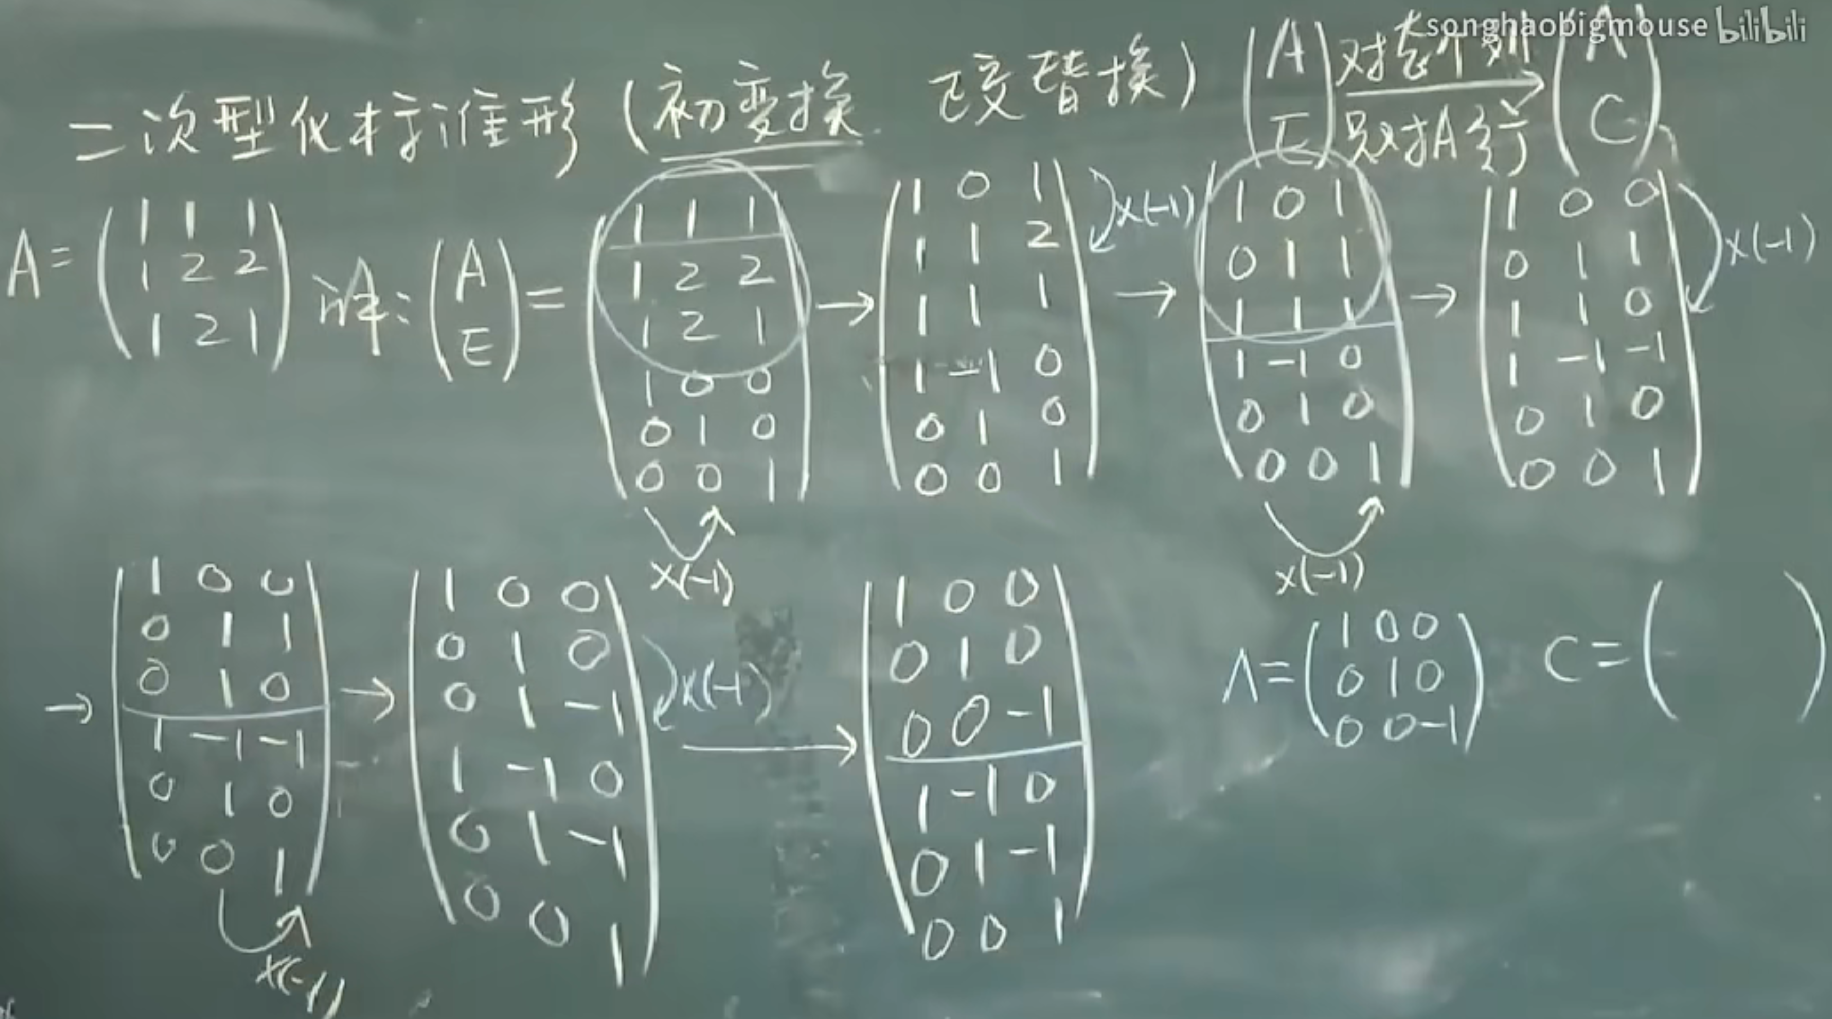 songhaobigmouse bilibili
二次型化标准形(初变换 正交替换) (A E) 对整个列 只对A行 → (A C)
A= (1 1 1 1 2 2 1 2 1) 解: (A E) = (1 1 1 1 2 2 1 2 1 1 0 0 0 1 0 0 0 1) → (1 0 1 1 1 2 1 1 1 1 -1 0 0 1 0 0 0 1) x(-1) → (1 0 1 0 1 1 1 1 1 1 -1 0 0 1 0 0 0 1) → (1 0 0 0 1 1 1 1 0 1 -1 -1 0 1 0 0 0 1) x(-1)
x(-1) x(-1)
→ (1 0 0 0 1 1 0 1 0 1 -1 -1 0 1 0 0 0 1) → (1 0 0 0 1 0 0 1 -1 1 -1 0 0 1 -1 0 0 1) x(-1) → (1 0 0 0 1 0 0 0 -1 1 -1 0 0 1 -1 0 0 1) Λ= (1 0 0 0 1 0 0 0 -1) C= ( )
x(-1)